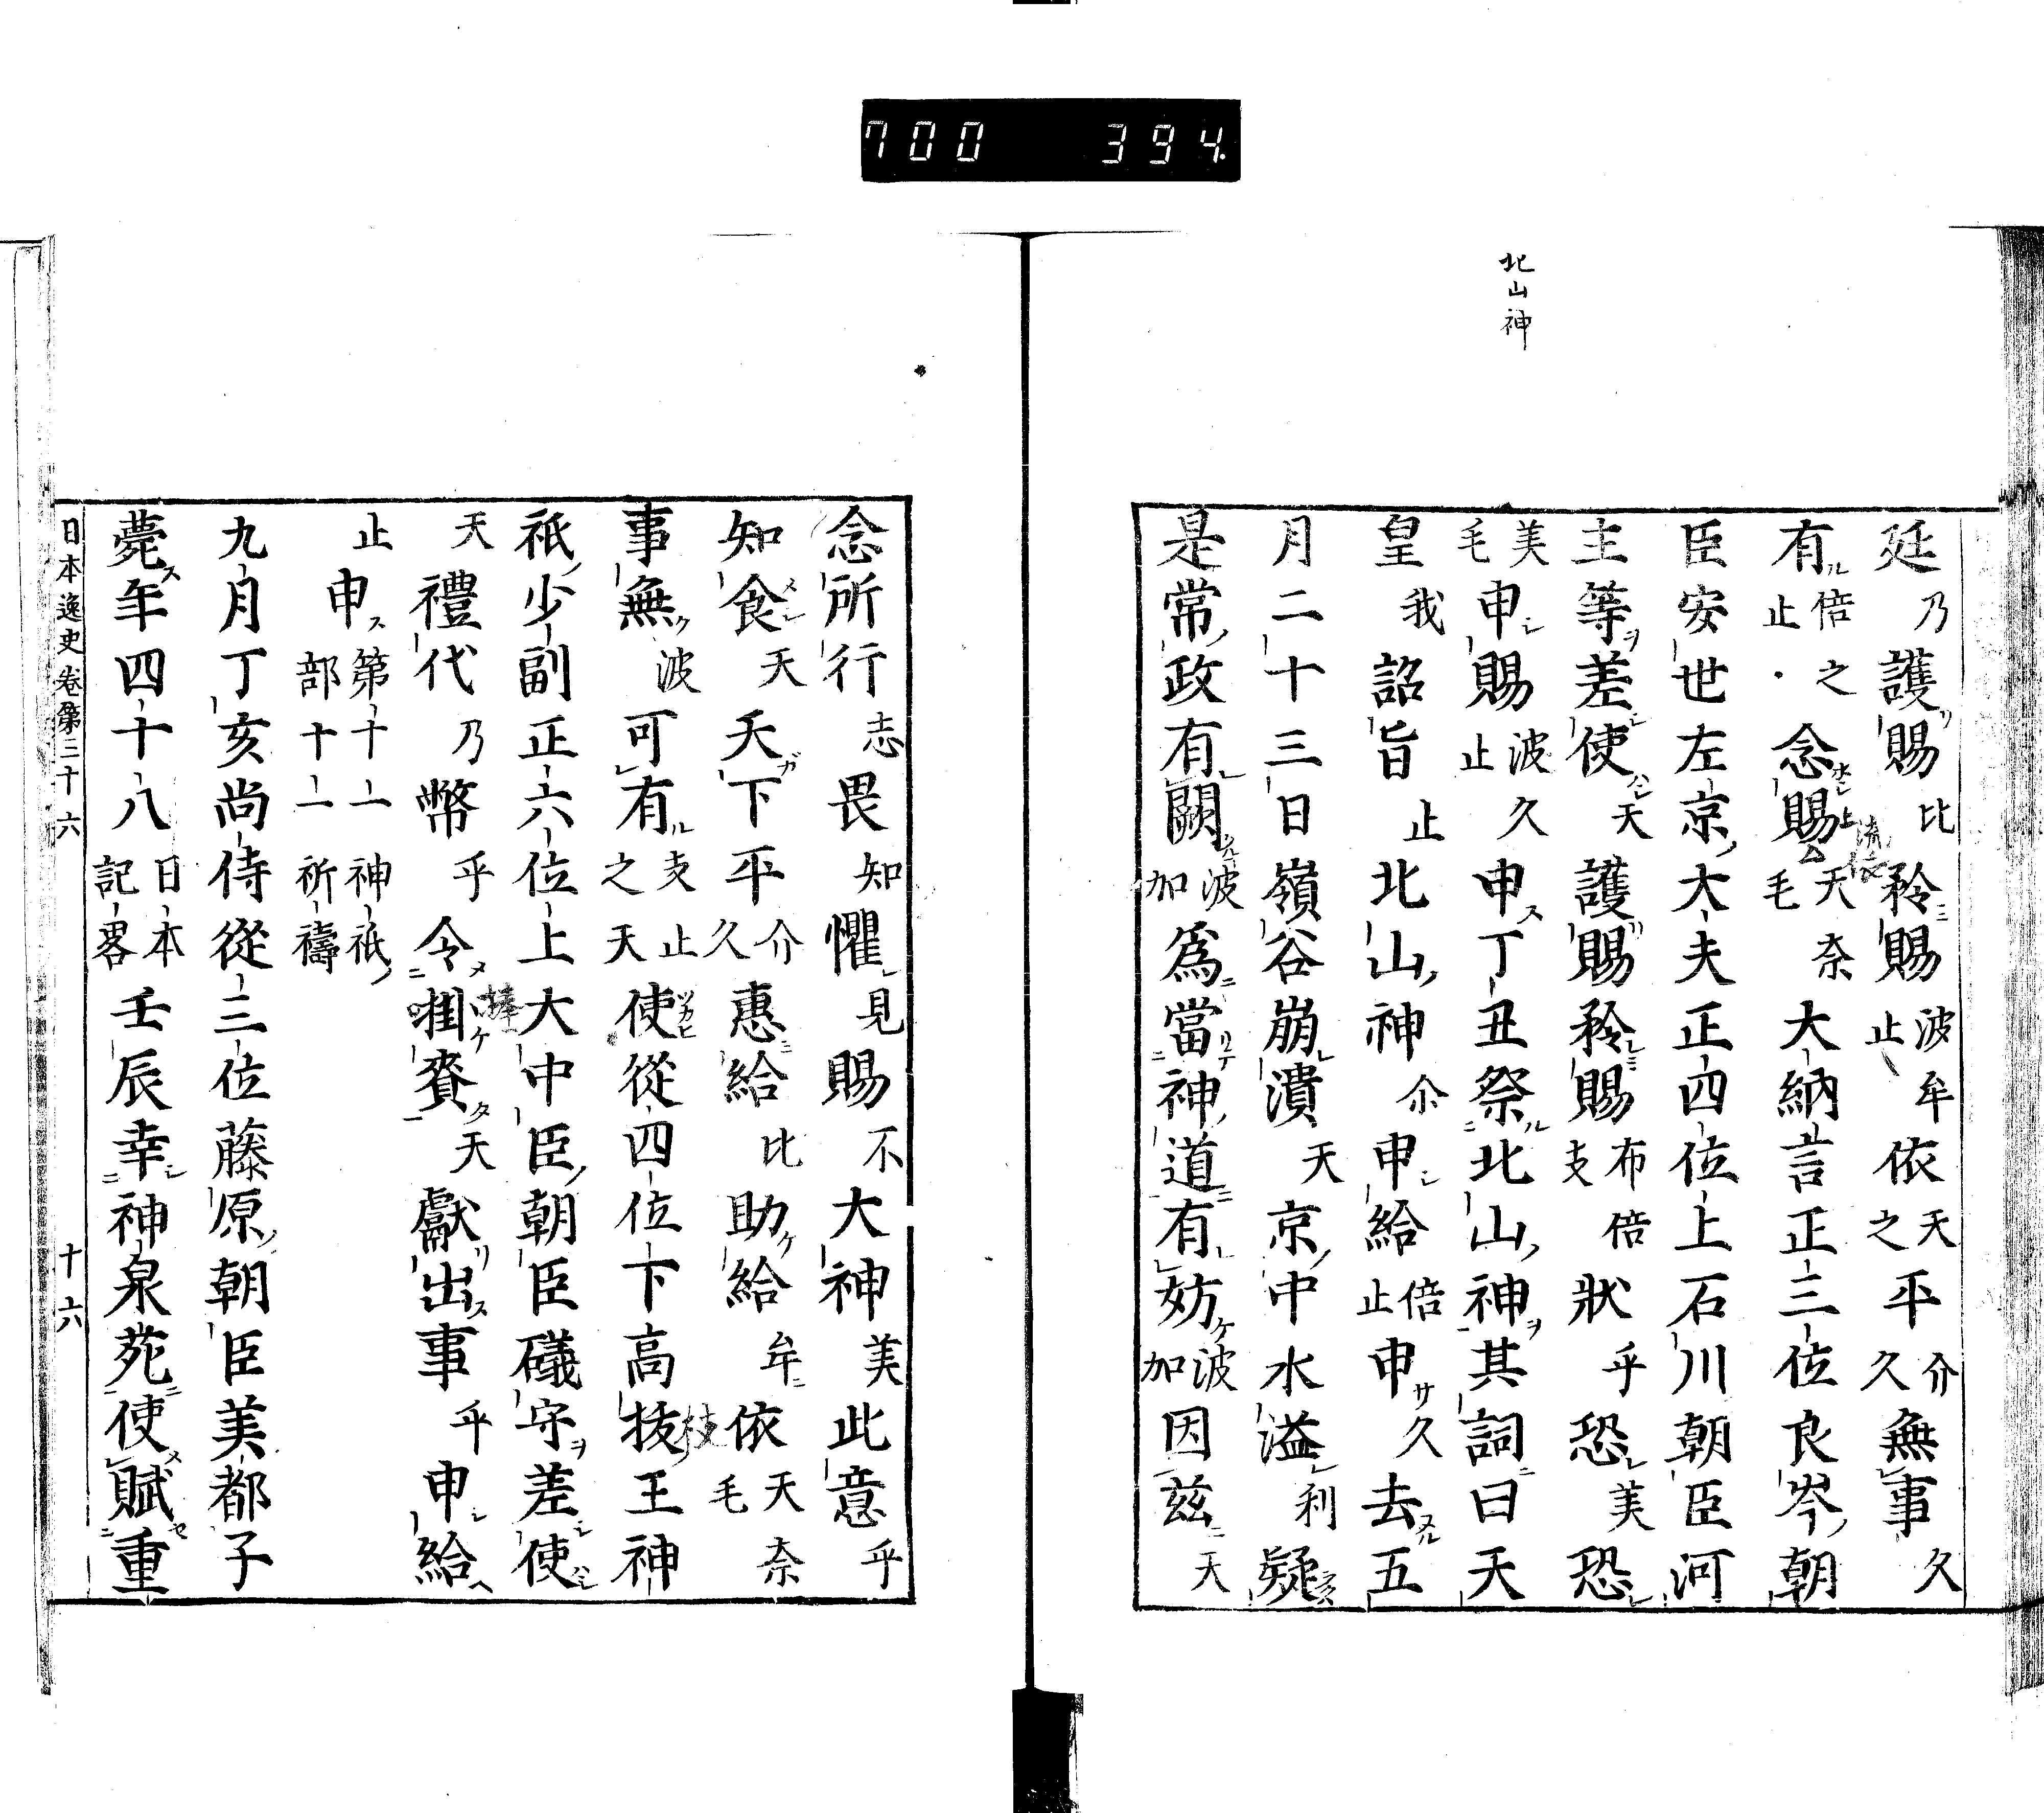 700 394.
北山神
廷乃護賜比矜賜波牟止依天之平介久無事久
有倍之止念賜天奈毛大納言正三位良岑朝
臣安世左京大夫正四位上石川朝臣河
主等差使天護賜矜賜布倍支狀乎恐美恐
美毛申賜波久止申丁丑祭北山神其詞曰天
皇我詔旨止北山神尒申給倍止申久去五
月二十三日嶺谷崩潰天京中水溢利疑
是常政有闕波加爲當神道有妨波加因茲天
念所行志畏知懼見賜不大神美此意乎
知食天天下平介久惠給比助給牟依天奈毛
事無波可有支止之天使從四位下高抜王神
枝
祇少副正六位上大中臣朝臣礒守差使
天禮代乃幣乎令捧賷天獻出事乎申給
止申第十一神祇部十一祈禱
九月丁亥尚侍從三位藤原朝臣美都子
薨年四十八日本記畧壬辰幸神泉苑使賦重
日本逸史卷第三十六 十六